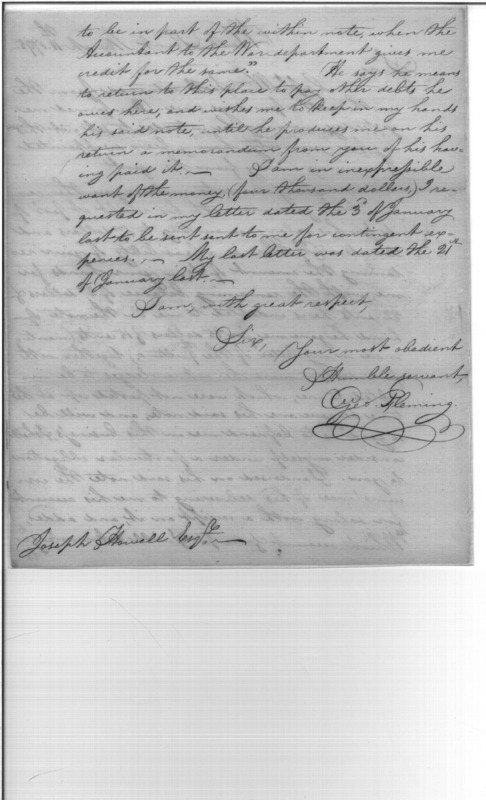 to be in part of the within note, when the
Accountant to the War department gives me
credit for the same." He says he means
to return to this place to pay other debts he
owes here, and wishes me to keep in my hands
his said note, until he produces me on his
return a memorandum from you of his hav-
ing paid it. I am in inexpressible
want of the money (four thousand dollars,) I re-
quested in my letter dated the 3d of January
last to be sent sent to me for contingent ex-
pences. My last letter was dated the 21st
of January last.
I am, with great respect,
Sir, Your most obedient
Humble servant,
Geo. Fleming.
Joseph Howell Esqr.